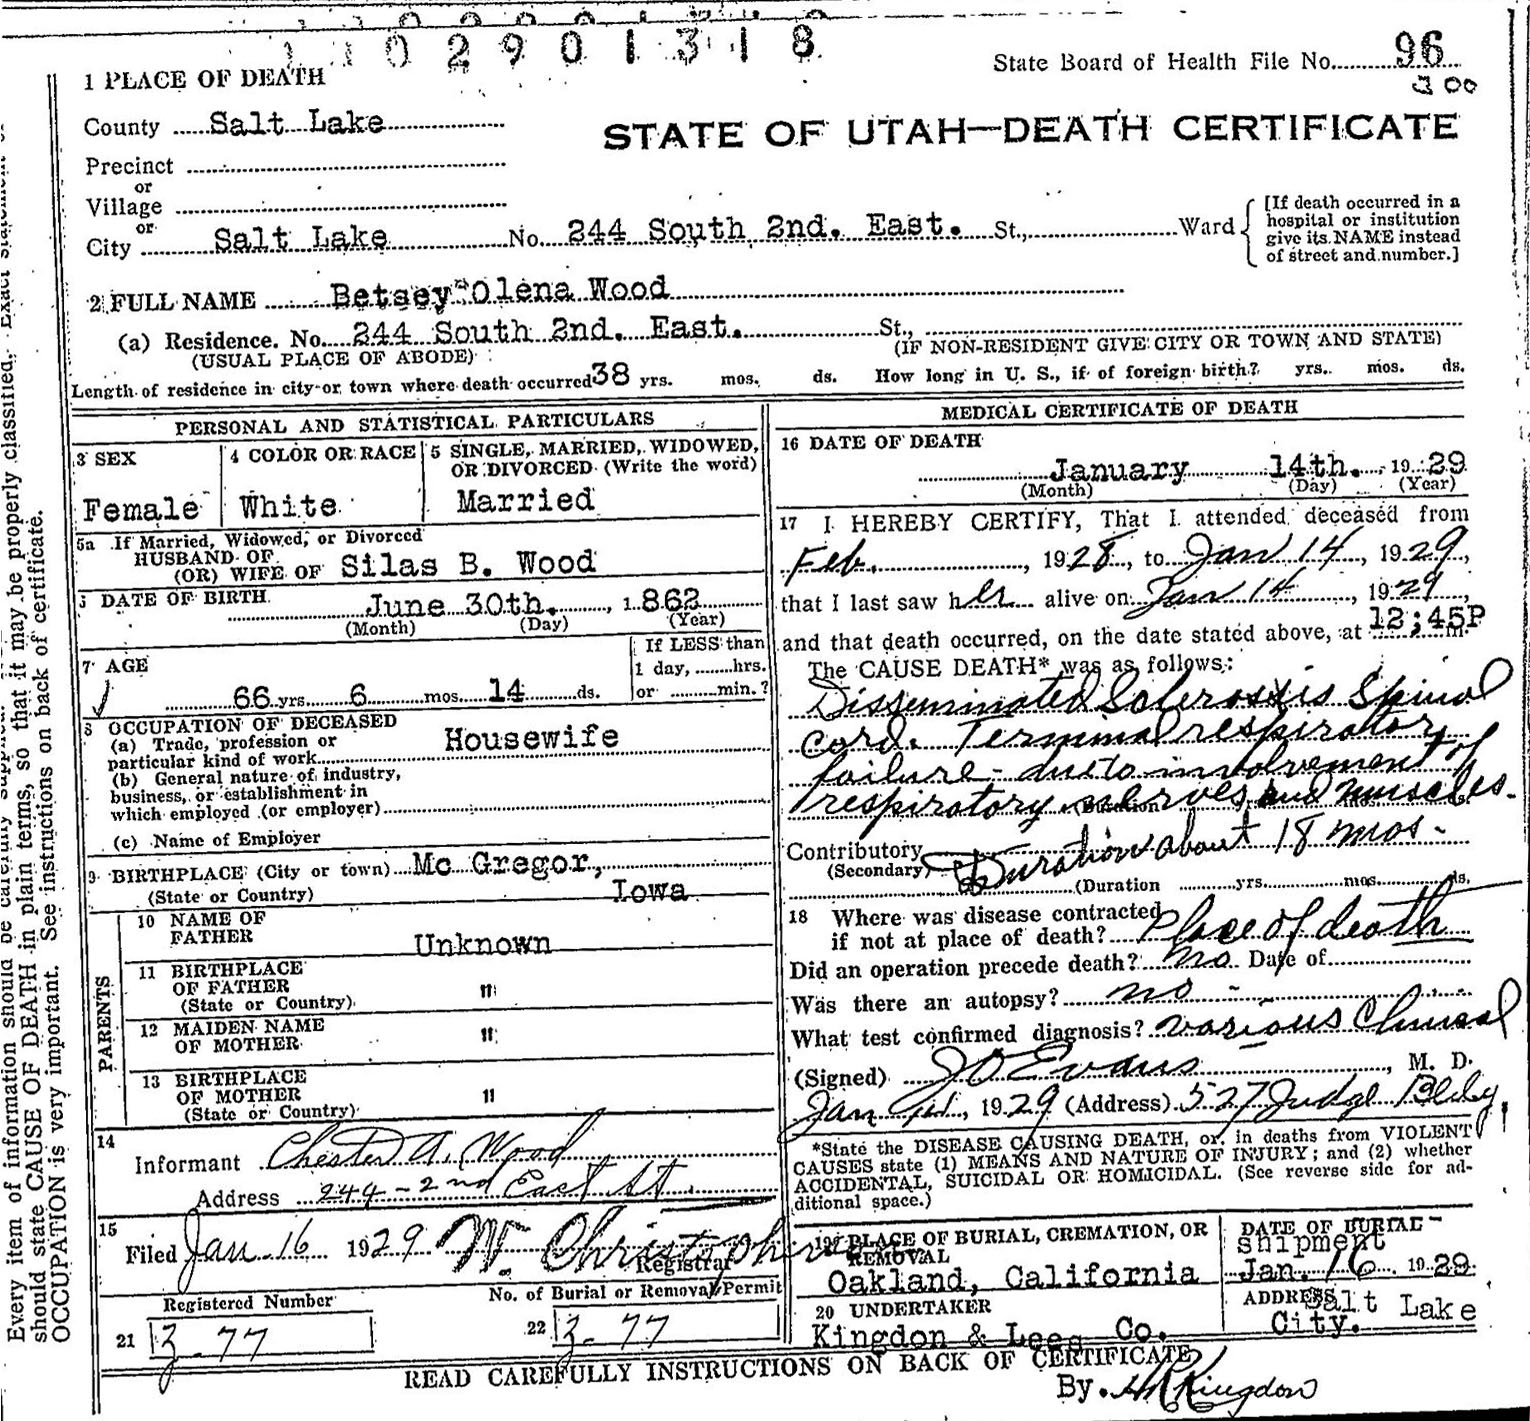 1 1 0 2 9 0 1 3 1 8
State Board of Health File No. 96
300
1 PLACE OF DEATH
County Salt Lake
STATE OF UTAH—DEATH CERTIFICATE
Precinct
or
Village
or
City Salt Lake No. 244 South 2nd. East. St., Ward
[If death occurred in a
hospital or institution
give its NAME instead
of street and number.]
2 FULL NAME Betsey Olena Wood
(a) Residence. No. 244 South 2nd. East. St.,
(USUAL PLACE OF ABODE) (IF NON-RESIDENT GIVE CITY OR TOWN AND STATE)
Length of residence in city or town where death occurred 38 yrs. mos. ds. How long in U. S., if of foreign birth? yrs. mos. ds.
PERSONAL AND STATISTICAL PARTICULARS
3 SEX
Female
4 COLOR OR RACE
White
5 SINGLE, MARRIED, WIDOWED,
OR DIVORCED (Write the word)
Married
5a If Married, Widowed, or Divorced
HUSBAND OF
(OR) WIFE OF Silas B. Wood
DATE OF BIRTH
June 30th., 1862
(Month) (Day) (Year)
7 AGE
66 yrs. 6 mos. 14 ds.
If LESS than
1 day, hrs.
or min.?
8 OCCUPATION OF DECEASED
(a) Trade, profession or
particular kind of work Housewife
(b) General nature of industry,
business, or establishment in
which employed (or employer)
(c) Name of Employer
9 BIRTHPLACE (City or town) Mc Gregor,
(State or Country) Iowa
PARENTS
10 NAME OF
FATHER Unknown
11 BIRTHPLACE
OF FATHER "
(State or Country)
12 MAIDEN NAME
OF MOTHER "
13 BIRTHPLACE
OF MOTHER "
(State or Country)
14
Informant Chester A. Wood
Address 244 - 2nd East St.
15
Filed Jan. 16 1929 W. Christopherson
Registrar
Registered Number
21 Z-77
No. of Burial or Removal Permit
22 Z-77
MEDICAL CERTIFICATE OF DEATH
16 DATE OF DEATH
January 14th., 1929
(Month) (Day) (Year)
17 I HEREBY CERTIFY, That I attended deceased from
Feb. , 1928, to Jan 14, 1929,
that I last saw her alive on Jan 14, 1929,
and that death occurred, on the date stated above, at 12;45P m.
The CAUSE DEATH* was as follows:
Disseminated Sclerosis Spinal
Cord. Terminal respiratory
failure - due to involvement of
respiratory nerves and muscles.
(Duration
Contributory Duration about 18 mos.
(Secondary)
(Duration yrs. mos. ds.
18 Where was disease contracted
if not at place of death? Place of death
Did an operation precede death? No Date of
Was there an autopsy? no -
What test confirmed diagnosis? various Clinical
(Signed) J O Evans, M. D.
Jan 14, 1929 (Address) 527 Judge Bldg.
*State the DISEASE CAUSING DEATH, or, in deaths from VIOLENT
CAUSES state (1) MEANS AND NATURE OF INJURY; and (2) whether
ACCIDENTAL, SUICIDAL OR HOMICIDAL. (See reverse side for ad-
ditional space.)
19 PLACE OF BURIAL, CREMATION, OR
REMOVAL
Oakland, California
DATE OF BURIAL
shipment
Jan. 16 1929
20 UNDERTAKER
Kingdon & Lees Co.
ADDRESS Salt Lake
City.
READ CAREFULLY INSTRUCTIONS ON BACK OF CERTIFICATE
By. Kingdon
Every item of information should be carefully
should state CAUSE OF DEATH in plain terms, so that it may be properly classified. Exact statement of
OCCUPATION is very important. See instructions on back of certificate.